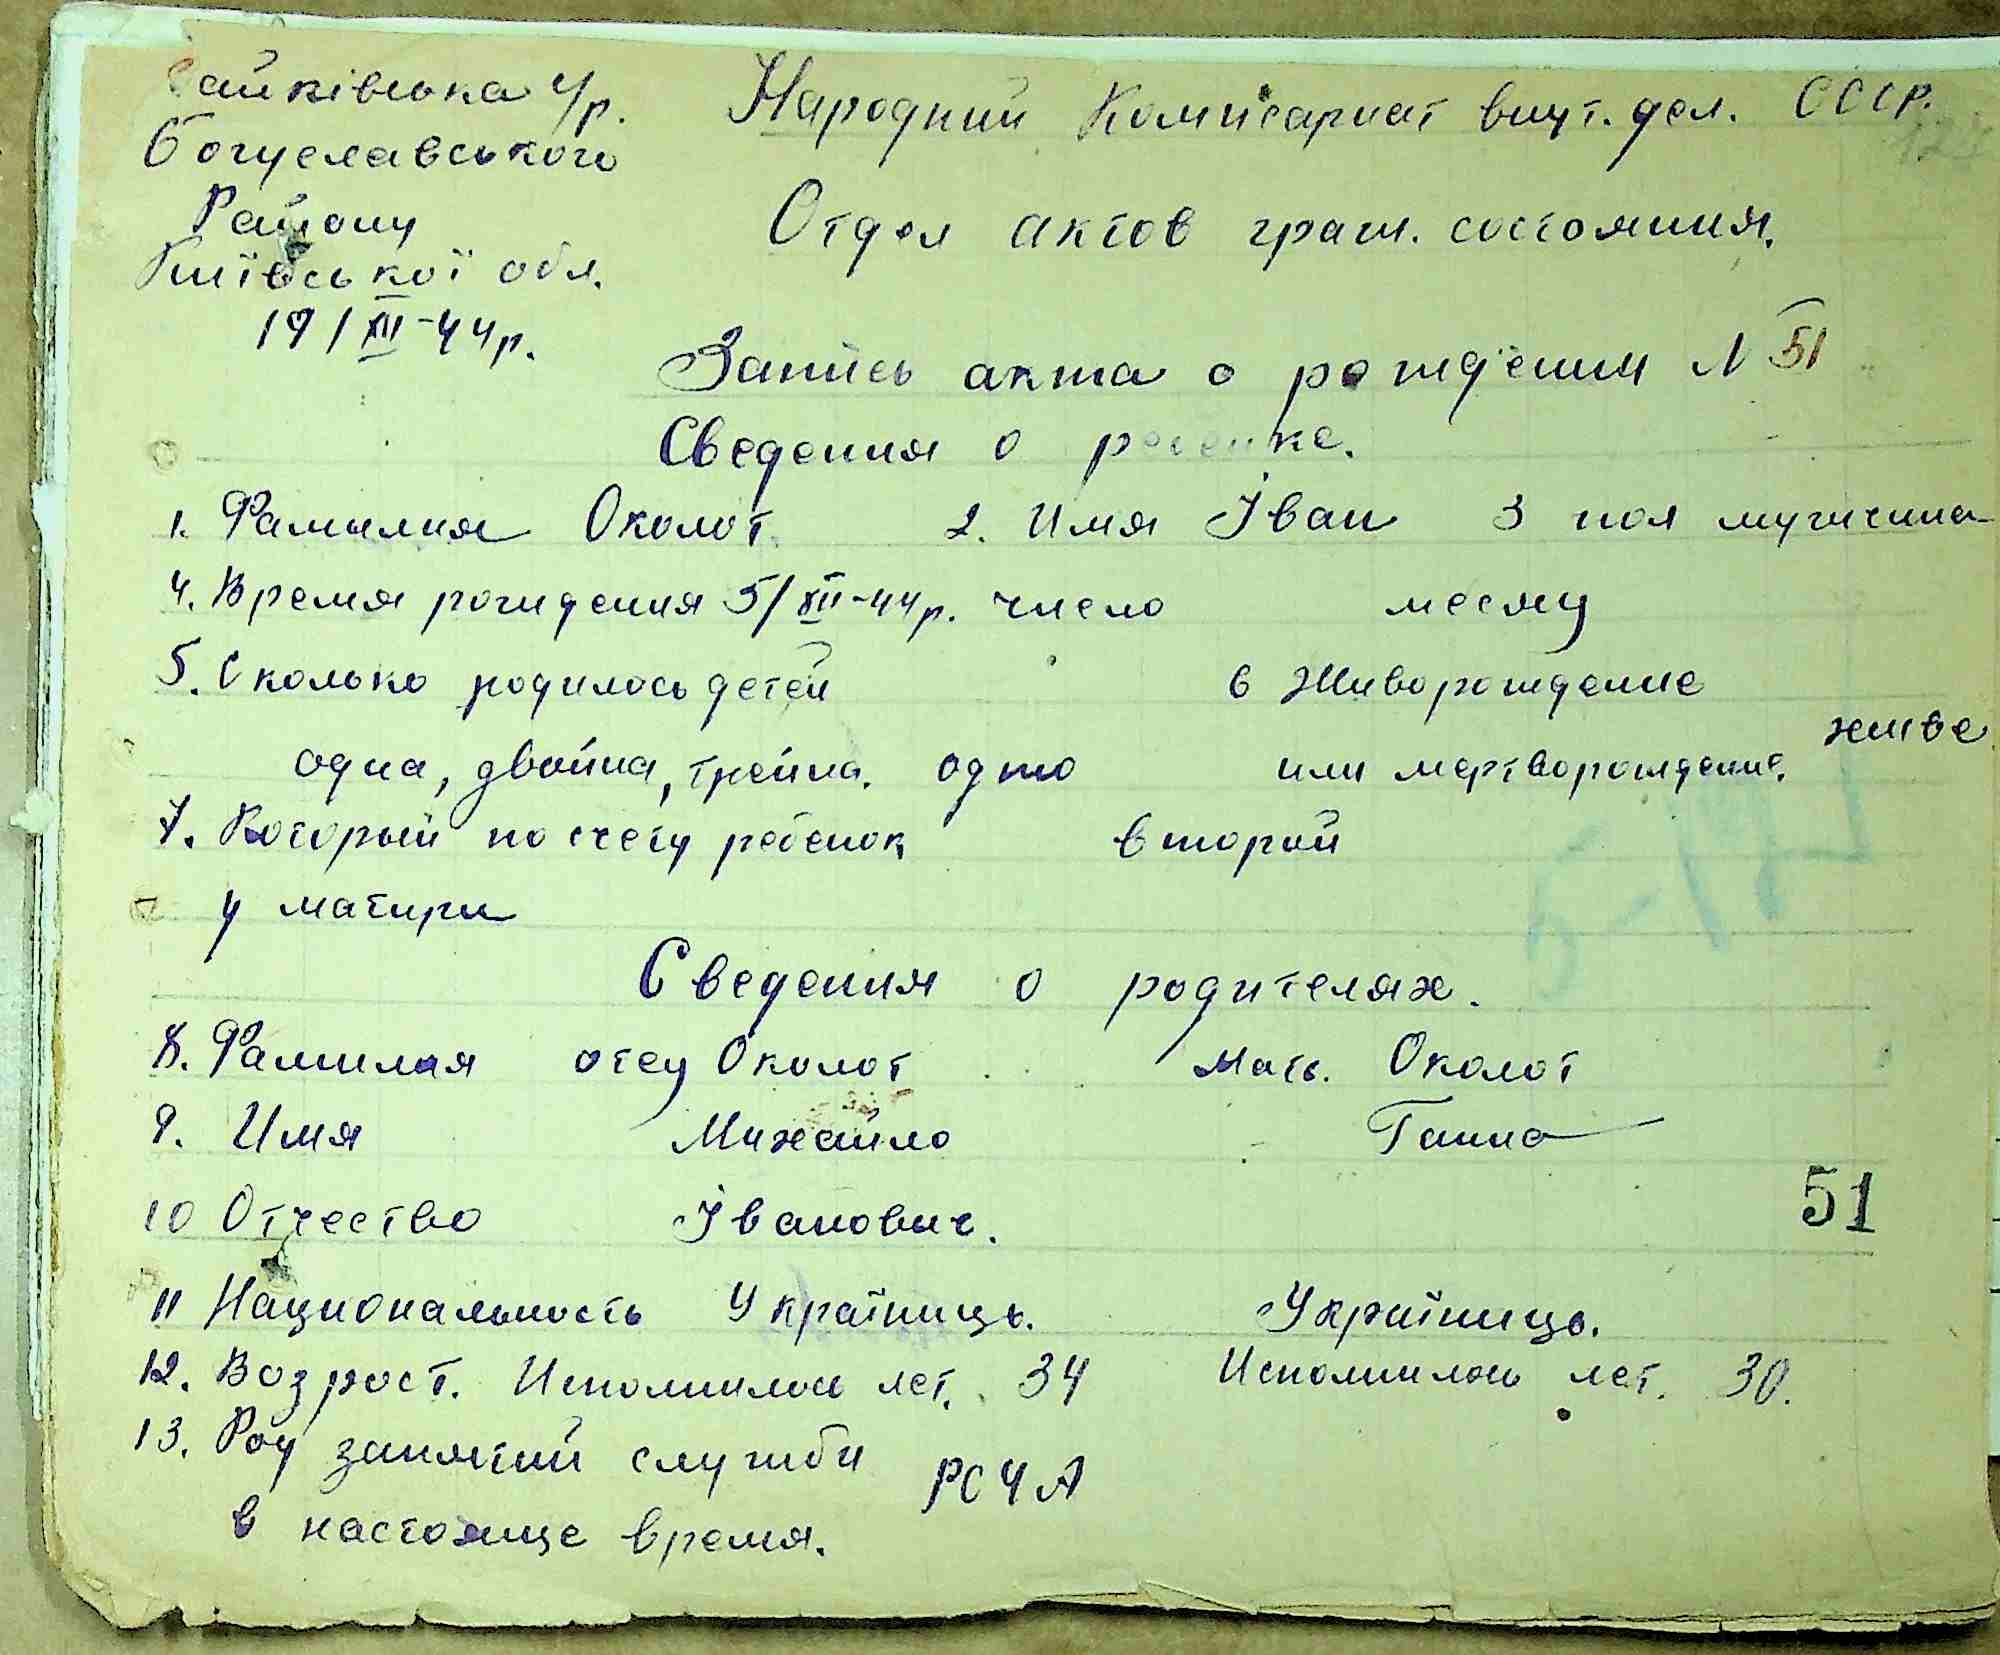 айківська с/р.
Богуславського
Району
Київської обл.
19/XII-44р.
Народний Комисариат внут. дел. СССР.
Отдел актов граж. состояния.
Запись акта о рождении N 51
Сведения о ребенке.
1. Фамилия Околот 2. Имя Іван 3 пол мужчина
4. Время рождения 5/XII-44р. число месяц
5. Сколько родилось детей 6 Живорождение
одна, двойна, тройна. одно или мертворождение. живе
7. Который по счету ребенок второй
у матири
Сведения о родителях.
8. Фамилия отец Околот мать. Околот
9. Имя Михайло Ганна
10 Отчество Іванович.
51
11 Национальность Українець. Українець.
12. Возрост. Исполнилось лет. 34 Исполнилось лет. 30.
13. Род занятий служби РСЧА
в настояще время.